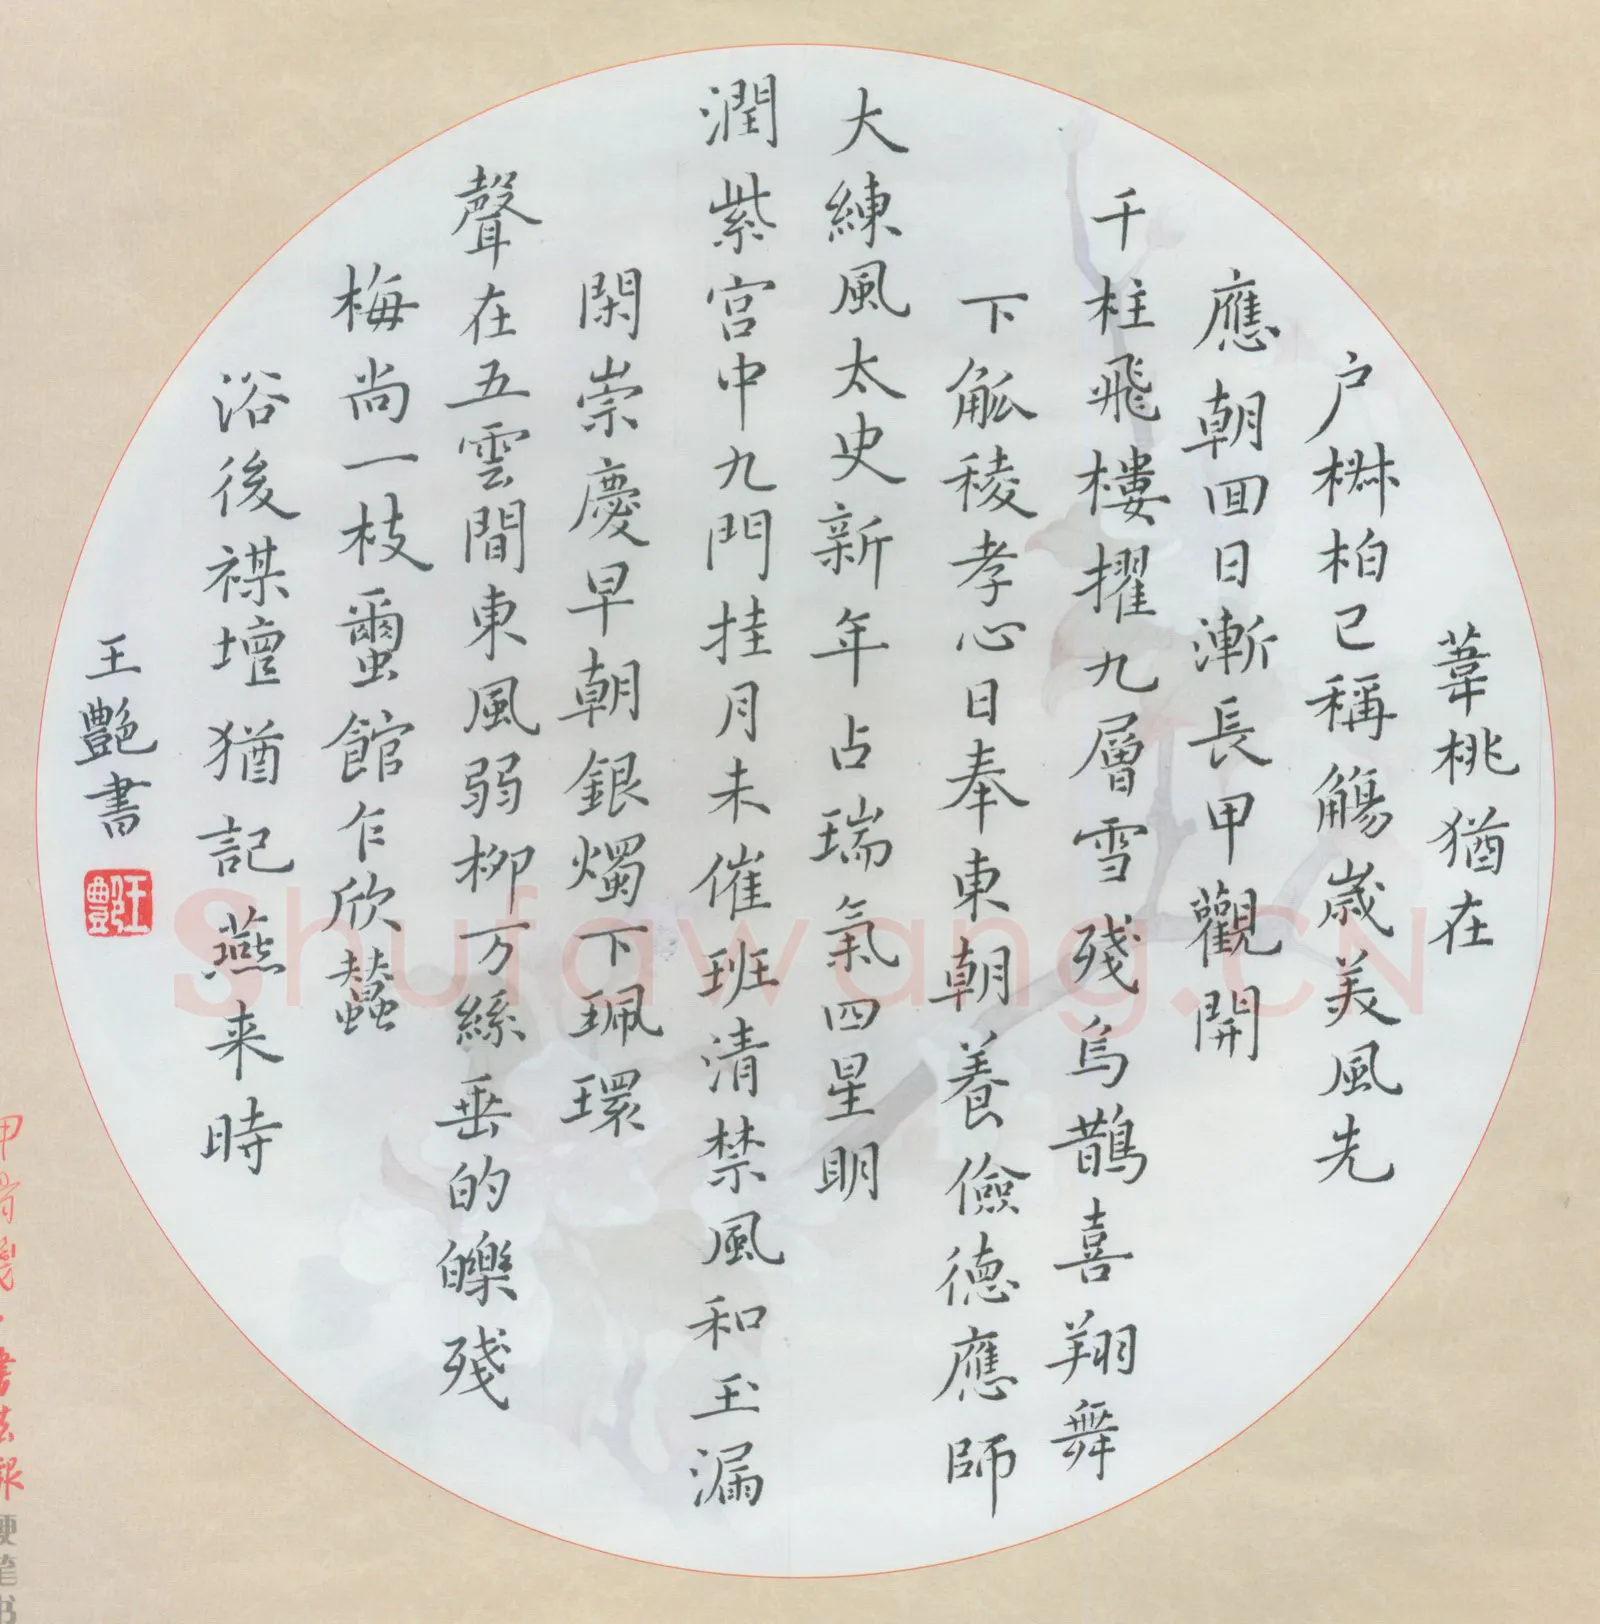 葦桃猶在
户椒柏已稱觴歳美風先
應朝囬日漸長甲觀開
千柱飛樓擢九層雪殘烏鵲喜翔舞
下觚稜孝心日奉東朝養儉德應師
大練風太史新年占瑞氣四星明
潤紫宫中九門挂月未催班清禁風和玉漏
閑崇慶早朝銀燭下珮環
聲在五雲間東風弱柳万絲垂的皪殘
梅尚一枝蠒館乍欣蠶
浴後禖壇猶記燕来時
王艷書
王艷
Shufawang.CN